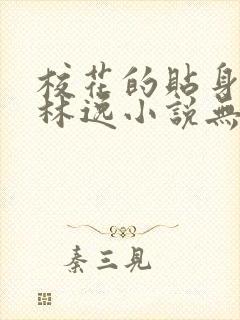 校花的貼身
林逸小說無
秦三見